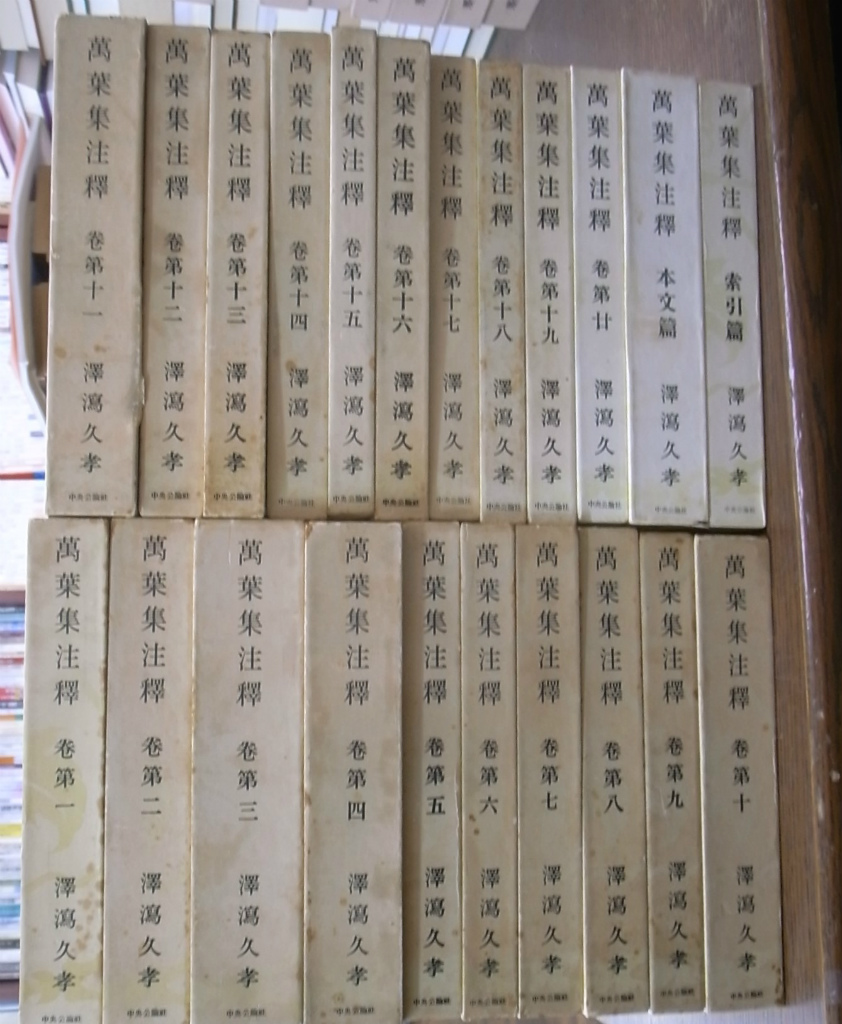 萬葉集注釋 卷第十一 澤瀉久孝 中央公論社
萬葉集注釋 卷第十二 澤瀉久孝 中央公論社
萬葉集注釋 卷第十三 澤瀉久孝 中央公論社
萬葉集注釋 卷第十四 澤瀉久孝 中央公論社
萬葉集注釋 卷第十五 澤瀉久孝 中央公論社
萬葉集注釋 卷第十六 澤瀉久孝 中央公論社
萬葉集注釋 卷第十七 澤瀉久孝 中央公論社
萬葉集注釋 卷第十八 澤瀉久孝 中央公論社
萬葉集注釋 卷第十九 澤瀉久孝 中央公論社
萬葉集注釋 卷第廿 澤瀉久孝 中央公論社
萬葉集注釋 本文篇 澤瀉久孝 中央公論社
萬葉集注釋 索引篇 澤瀉久孝 中央公論社
萬葉集注釋 卷第一 澤瀉久孝 中央公論社
萬葉集注釋 卷第二 澤瀉久孝 中央公論社
萬葉集注釋 卷第三 澤瀉久孝 中央公論社
萬葉集注釋 卷第四 澤瀉久孝 中央公論社
萬葉集注釋 卷第五 澤瀉久孝 中央公論社
萬葉集注釋 卷第六 澤瀉久孝 中央公論社
萬葉集注釋 卷第七 澤瀉久孝 中央公論社
萬葉集注釋 卷第八 澤瀉久孝 中央公論社
萬葉集注釋 卷第九 澤瀉久孝 中央公論社
萬葉集注釋 卷第十 澤瀉久孝 中央公論社